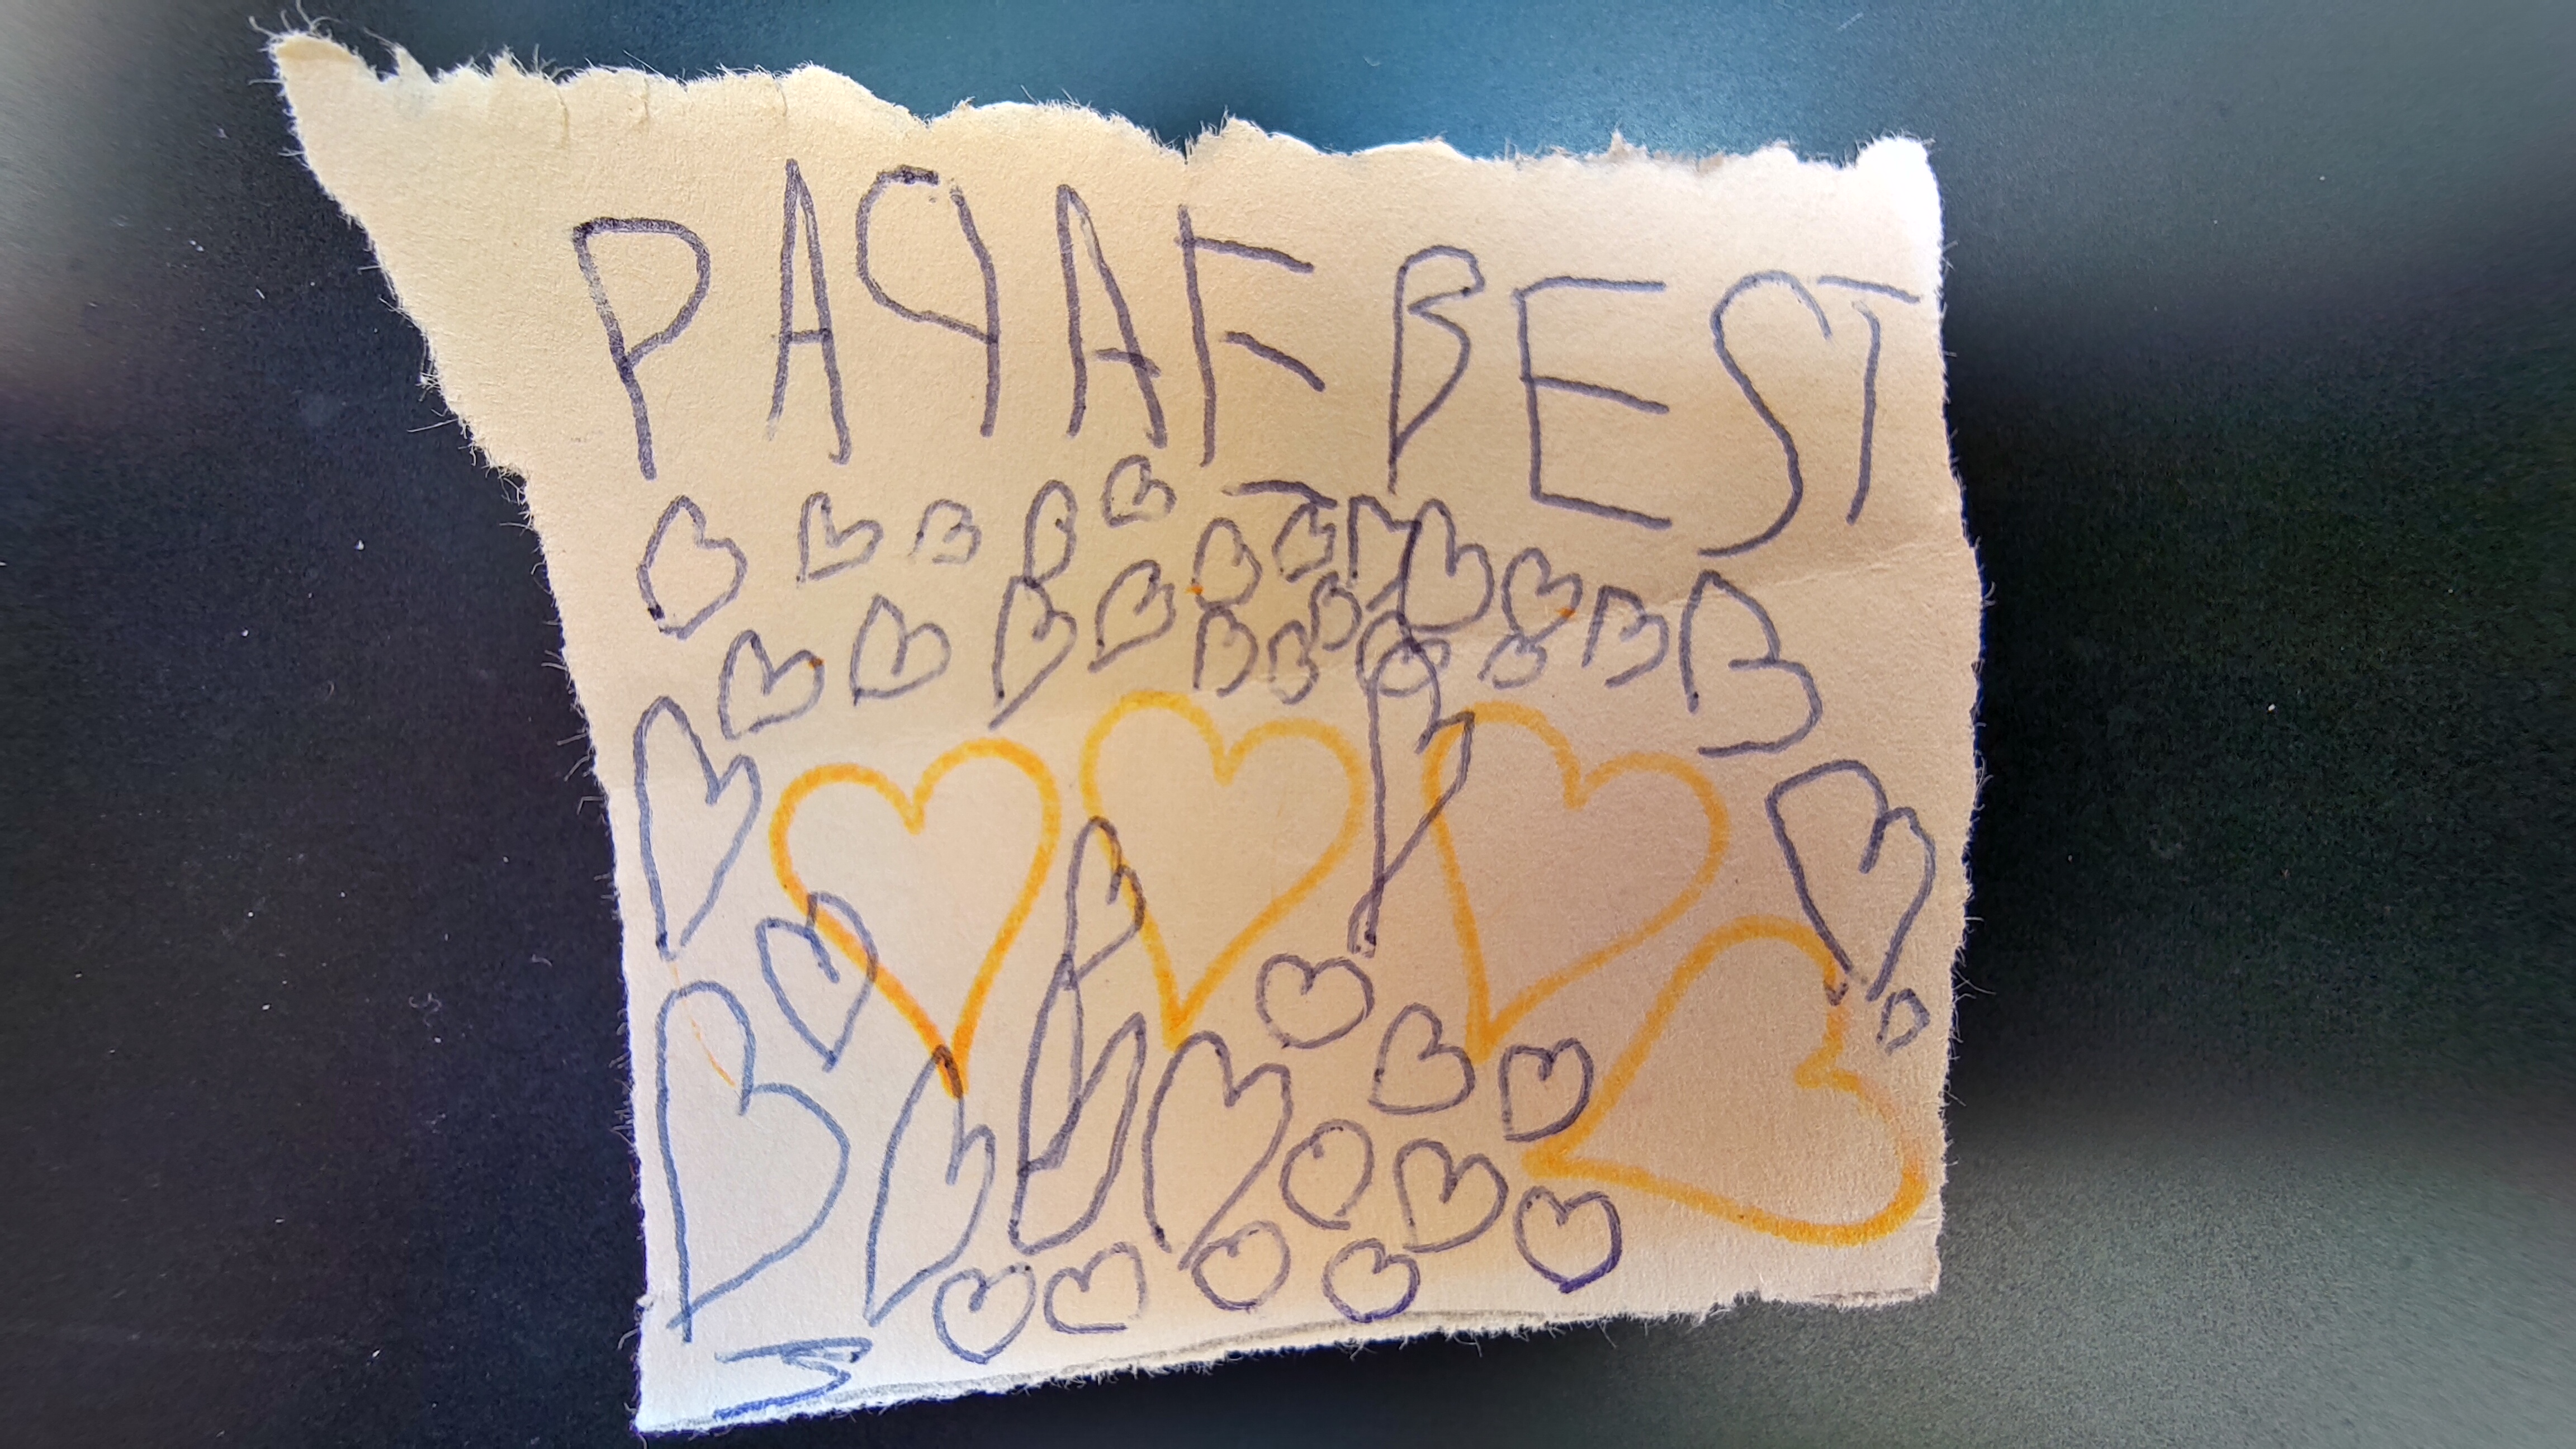 PAPAF BEST